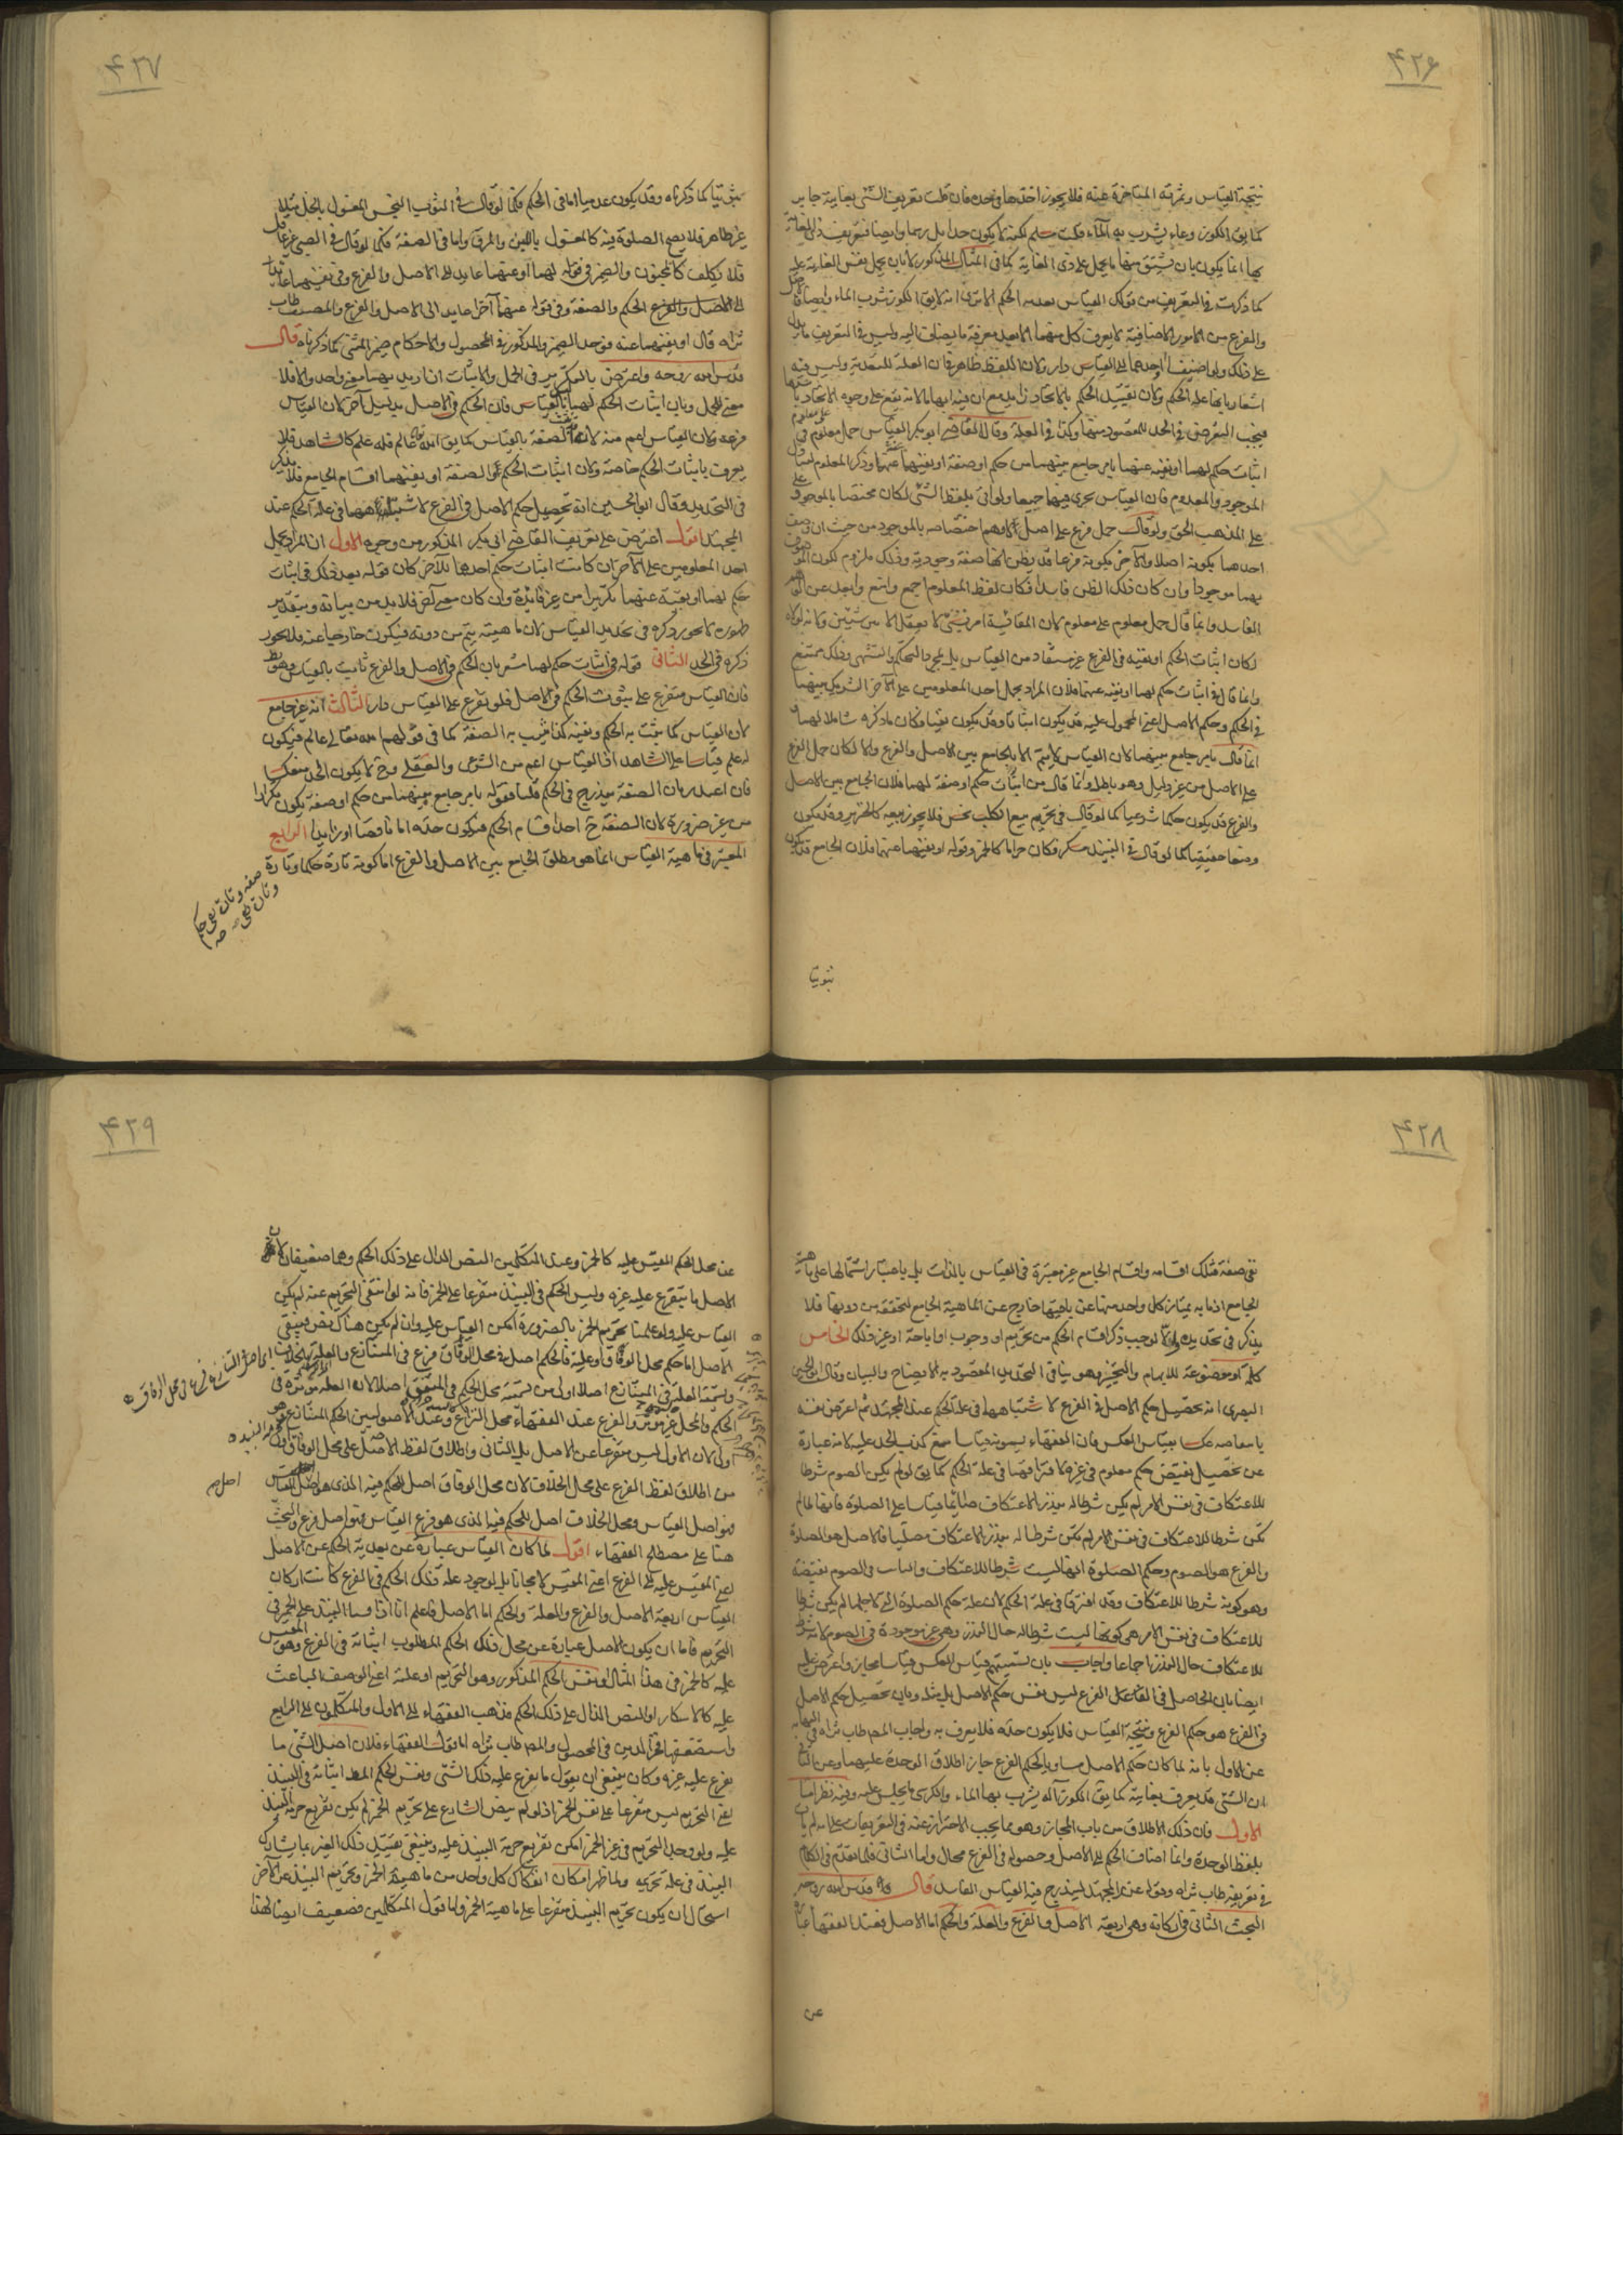 ۴۲۶
نتيجة القياس وثمرته المتاخرة عنه فلا يجوز اخذها فى حده فان قلت تعريف الشئ بغايته جايز
كما يق الكوز وعاء يشرب به الماء قلت مسلم لكنه لا يكون حدا بل رسما وايضا فتعريف ذى الغاية
بها انما يكون بان يشتق منها ما يحمل على ذى الغاية كما فى المثال المذكور لا بان يحمل نفس الغاية عليه
كما ذكرت فى التعريف من قولك القياس تعدية الحكم الا ترى انه لا يق الكوز شرب الماء وايضا فالاصل
والفرع من الامور الاضافية لا يعرف كل منهما الا بعد معرفة ما يضاف اليه وليس فى التعريف ما يدل
على ذلك ولو اضيف احدهما الى القياس دار ولان اللفظ ظاهر فان العلة للتعدية وليس فيه
اشعار بانها علة الحكم ولان تقييد الحكم بالاتحاد زايد مع ان فيه ابهاما لانه يقع على وجوه الاتحاد
فيجب التعرض فى الحد للمقصود منها وكذا فى العلة وقال القاضى ابو بكر القياس حمل معلوم على معلوم فى
اثبات حكم لهما او نفيه عنهما بامر جامع بينهما من حكم او صفة او نفيهما عنهما وذكر المعلوم ليتناول
الموجود والمعدوم فان القياس يجرى فيهما جميعا ولو اتى بلفظ الشئ لكان مختصا بالموجود
على المذهب الحق ولو قال حمل فرع على اصل لاوهم اختصاصه بالموجود من حيث ان وصف
احدهما بكونه اصلا والآخر بكونه فرعا قد يظن انها صفة وجودية وذلك ملزوم لكون الموصوف
بهما موجودا وان كان ذلك الظن فاسدا فكان لفظ المعلوم اجمع وامنع وابعد عن الوهم
الفاسد وانما قال حمل معلوم على معلوم لان المقايسة امر نسبى لا يعقل الا بين شيئين ولانه لولاه
لكان اثبات الحكم او نفيه فى الفرع غير مستفاد من القياس بل بمجرد التحكم والتشهى وذلك ممتنع
وانما قال فى اثبات حكم لهما او نفيه عنهما لان المراد بحمل احد المعلومين على الآخر التشريك بينهما
فى الحكم وحكم الاصل اعنى المحمول عليه قد يكون اثباتا وقد يكون نفيا فكان ما ذكره شاملا لهما و
انما قال بامر جامع بينهما لان القياس لا يتم الا بالجامع بين الاصل والفرع والا لكان حمل الفرع
على الاصل من غير دليل وهو باطل وانما قال من اثبات حكم او صفة لهما لان الجامع بين الاصل
والفرع قد يكون حكما شرعيا كما لو قال فى تحريم بيع الكلب نجس فلا يجوز بيعه كالخنزير وقد يكون
وصفا حقيقيا كما لو قال فى النبيذ مسكر فكان حراما كالخمر وقوله او نفيهما عنهما لان الجامع قد يكون
ثبوتيا
۴۲۷
ثبوتيا كما ذكرناه وقد يكون عدميا اما فى الحكم فكما لو قال فى الثوب النجس المغسول بالخل مثلا
غير طاهر فلا يصح الصلوة فيه كالمغسول باللبن والمرق واما فى الصفة فكما لو قال فى الصبى غير عاقل
فلا يكلف كالمجنون والضمير فى قوله لهما او عنهما عايد الى الاصل والفرع وفى نفيهما عايد
الى الاصل والفرع الحكم والصفة وفى قوله عنهما آخرا عايد الى الاصل والفرع والمصنف طاب
ثراه قال او نفيهما عنه فوحد الضمير والمذكور فى المحصول والاحكام ضمير المثنى كما ذكرناه قال
قدس الله روحه واعترض بالتكرير فى الحمل والاثبات ان اريد بهما معنى واحد والا فلا
معنى للحمل وبان اثبات الحكم لهما بالقياس فان الحكم فى الاصل بدليل آخر لان القياس
فرعه ولان القياس اعم منه لاثبات الصفة بالقياس كما يق الله تعالى عالم فله علم كالشاهد فلا
يعرف باثبات الحكم خاصة ولان اثبات الحكم او الصفة او نفيهما اقسام الجامع فلا يذكر
فى التحديد وقال ابو الحسين انه تحصيل حكم الاصل فى الفرع لاشتباههما فى علة الحكم عند
المجتهد اقول اعترض على تعريف القاضى ابى بكر المذكور من وجوه الاول ان المراد بحمل
احد المعلومين على الآخر ان كانت اثبات حكم احدهما للآخر كان قوله بعد ذلك فى اثبات
حكم لهما او نفيه عنهما تكريرا من غير فائدة وان كان معنى آخر فلا بد من بيانه وبتقدير
ظهوره لا يجوز ذكره فى تحديد القياس لان ماهيته يتم من دونه فيكون خارجيا عنه فلا يجوز
ذكره فى الحد الثانى قوله فى اثبات حكم لهما مشعر بان الحكم فى الاصل والفرع ثابت بالقياس وهو بط
فان القياس متفرع على ثبوت الحكم فى الاصل فلو تفرع على القياس دار الثالث انه غير جامع
لان القياس كما يثبت به الحكم ونفيه كذا يثبت به الصفة كما فى قولهم الله تعالى عالم فيكون
له علم قياسا على الشاهد اذ القياس اعم من الشرعى والعقلى وح لا يكون الحد منعكسا
فان اعتذر بان الصفة يندرج فى الحكم قلنا فقوله بامر جامع بينهما من حكم او صفة يكون مكررا
من غير ضرورة لان الصفة ح احد اقسام الحكم فيكون حده اما ناقصا او زايدا الرابع
المعتبر فى ماهية القياس انما هو مطلق الجامع بين الاصل والفرع اما كونه تارة حكما وتارة
صفة وتارة نفى حكم
وتارة نفى صفة
۴۲۸
نفى صفة فتلك اقسامه واقسام الجامع غير معتبرة فى القياس بالذات بل باعتبار اشتمالها على ماهية
الجامع اذ ما به يمتاز كل واحد منها عن باقيها خارج عن الماهية الجامع لتحققه من دونها فلا
يذكر فى تحديده والا لوجب ذكر اقسام الحكم من تحريم او وجوب او اباحة او غير ذلك الخامس
كلمة او موضوعة للابهام والتخيير وهو ينافى التحديد المقصود به الايضاح والبيان وقال ابو الحسين
البصرى انه تحصيل حكم الاصل فى الفرع لاشتباههما فى علة الحكم عند المجتهد ثم اعترض نفسه
بقياس العكس فان الفقهاء يسمونه قياسا مع كذب الحد عليه لانه عبارة
عن تحصيل نقيض حكم معلوم فى غيره لافتراقهما فى علة الحكم كما يق لو لم يكن الصوم شرطا
للاعتكاف فى نفس الامر لم يكن شرطا له بنذر الاعتكاف صائما قياسا على الصلوة فانها لما لم
تكن شرطا للاعتكاف فى نفس الامر لم تكن شرطا له بنذر الاعتكاف مصليا فالاصل هو الصلوة
والفرع هو الصوم وحكم الصلوة انها ليست شرطا للاعتكاف والثابت فى الصوم نقيضه
وهو كونه شرطا للاعتكاف وقد افترقا فى علة الحكم لان علة حكم الصلوة التى لاجلها لم يكن شرطا
للاعتكاف فى نفس الامر هى كونها ليست شرطا له حال النذر وهى غير موجودة فى الصوم لانه شرط
للاعتكاف حال النذر اجماعا واجاب بان تسميتهم قياس العكس قياسا مجاز واعترض عليه
ايضا بان الحاصل فى الفرع ليس نفس حكم الاصل بل مثله وبان تحصيل حكم الاصل
فى الفرع هو حكم الفرع ونتيجة القياس فلا يكون حده فلا يعرف به واجاب المصه طاب ثراه فى النهاية
عن الاول بانه لما كان حكم الاصل مساويا لحكم الفرع جاز اطلاق الوحدة عليهما وعن الثانى
ان الشئ قد يعرف بغايته كما يق الكوز آلة يشرب بها الماء والكرسى ما يجلس عليه وفيه نظر اما
الاول فان ذلك الاطلاق من باب المجاز وهو مما يجب الاحتراز عنه فى التعريفات على انه لم يأت
بلفظ الوحدة وانما اضاف الحكم الى الاصل وحصوله فى الفرع محال واما الثانى فلما تقدم فى الكلام
فى تعريفه طاب ثراه وقوله عند المجتهد ليندرج فيه القياس الفاسد قال قدس الله روحه
البحث الثانى فى اركانه وهى اربعة الاصل والفرع والعلة والحكم اما الاصل فعند الفقهاء عبارة
عن
۴۲۹
عن محل الحكم المقيس عليه كالخمر وعند المتكلمين النص الدال على ذلك الحكم وهما ضعيفان لان
الاصل ما يتفرع عليه غيره وليس الحكم فى النبيذ متفرعا على الخمر فانه لو انتفى التحريم عنه لم يكن
القياس عليه ولو علمنا تحريم الخمر بالضرورة امكن القياس عليه وان لم يكن هناك نص فبقى
الاصل اما حكم محل الوفاق او علته فالحكم اصل فى محل الوفاق فرع فى المتنازع والعلة بالخلاف
وتسمية العلة فى المتنازع اصلا اولى من تسمية محل الحكم فى المتفق اصلا لان العلة مؤثرة فى
الحكم والمحل غير مؤثر والفرع عند الفقهاء محل النزاع وعند الاصوليين الحكم المتنازع وهو
اولى لان الاول ليس متفرعا عن الاصل بل الثانى واطلاق لفظ الاصل على محل الوفاق اولى
من اطلاق لفظ الفرع على محل الخلاف لان محل الوفاق اصل للحكم فيه الذى هو اصل القياس
فهو اصل القياس ومحل الخلاف اصل للحكم فيه الذى هو فرع القياس فهو اصل فرع والبحث
هنا على مصطلح الفقهاء اقول لما كان القياس عبارة عن تعدية الحكم عن الاصل
اعنى المقيس عليه الى الفرع اعنى المقيس لا مجانا بل لوجود علة ذلك الحكم فى الفرع كانت اركان
القياس اربعة الاصل والفرع والعلة والحكم اما الاصل فاعلم انا اذا قسنا النبيذ على الخمر فى
التحريم فاما ان يكون الاصل عبارة عن محل ذلك الحكم المطلوب اثباته فى الفرع وهو المقيس
عليه كالخمر فى هذا المثال او نفس الحكم المذكور وهو التحريم او علته اعنى الوصف الباعث
عليه كالاسكار او النص الدال على ذلك الحكم فذهب الفقهاء الى الاول والمتكلمون الى الرابع
واستضعفهما فخر الدين فى المحصول والمصه طاب ثراه اما قول الفقهاء فلان اصل الشئ ما
يفرع عليه غيره وكان ينبغى ان يقول ما يفرع عليه ذلك الشئ ونفس الحكم المط اثباته فى النبيذ
اعنى التحريم ليس متفرعا على نفس الخمر اذ لو لم ينص الشارع على تحريم الخمر لم يكن تفريع حرمة النبيذ
عليه ولو وجد التحريم فى غير الخمر امكن تفريع حرمة النبيذ عليه وينبغى تقييد ذلك الغير بما يشارك
النبيذ فى علة تحريمه ولما ظهر امكان انفكاك كل واحد من ماهية الخمر وتحريم النبيذ عن الآخر
استحال ان يكون تحريم النبيذ متفرعا على ماهية الخمر واما قول المتكلمين فضعيف ايضا لهذا